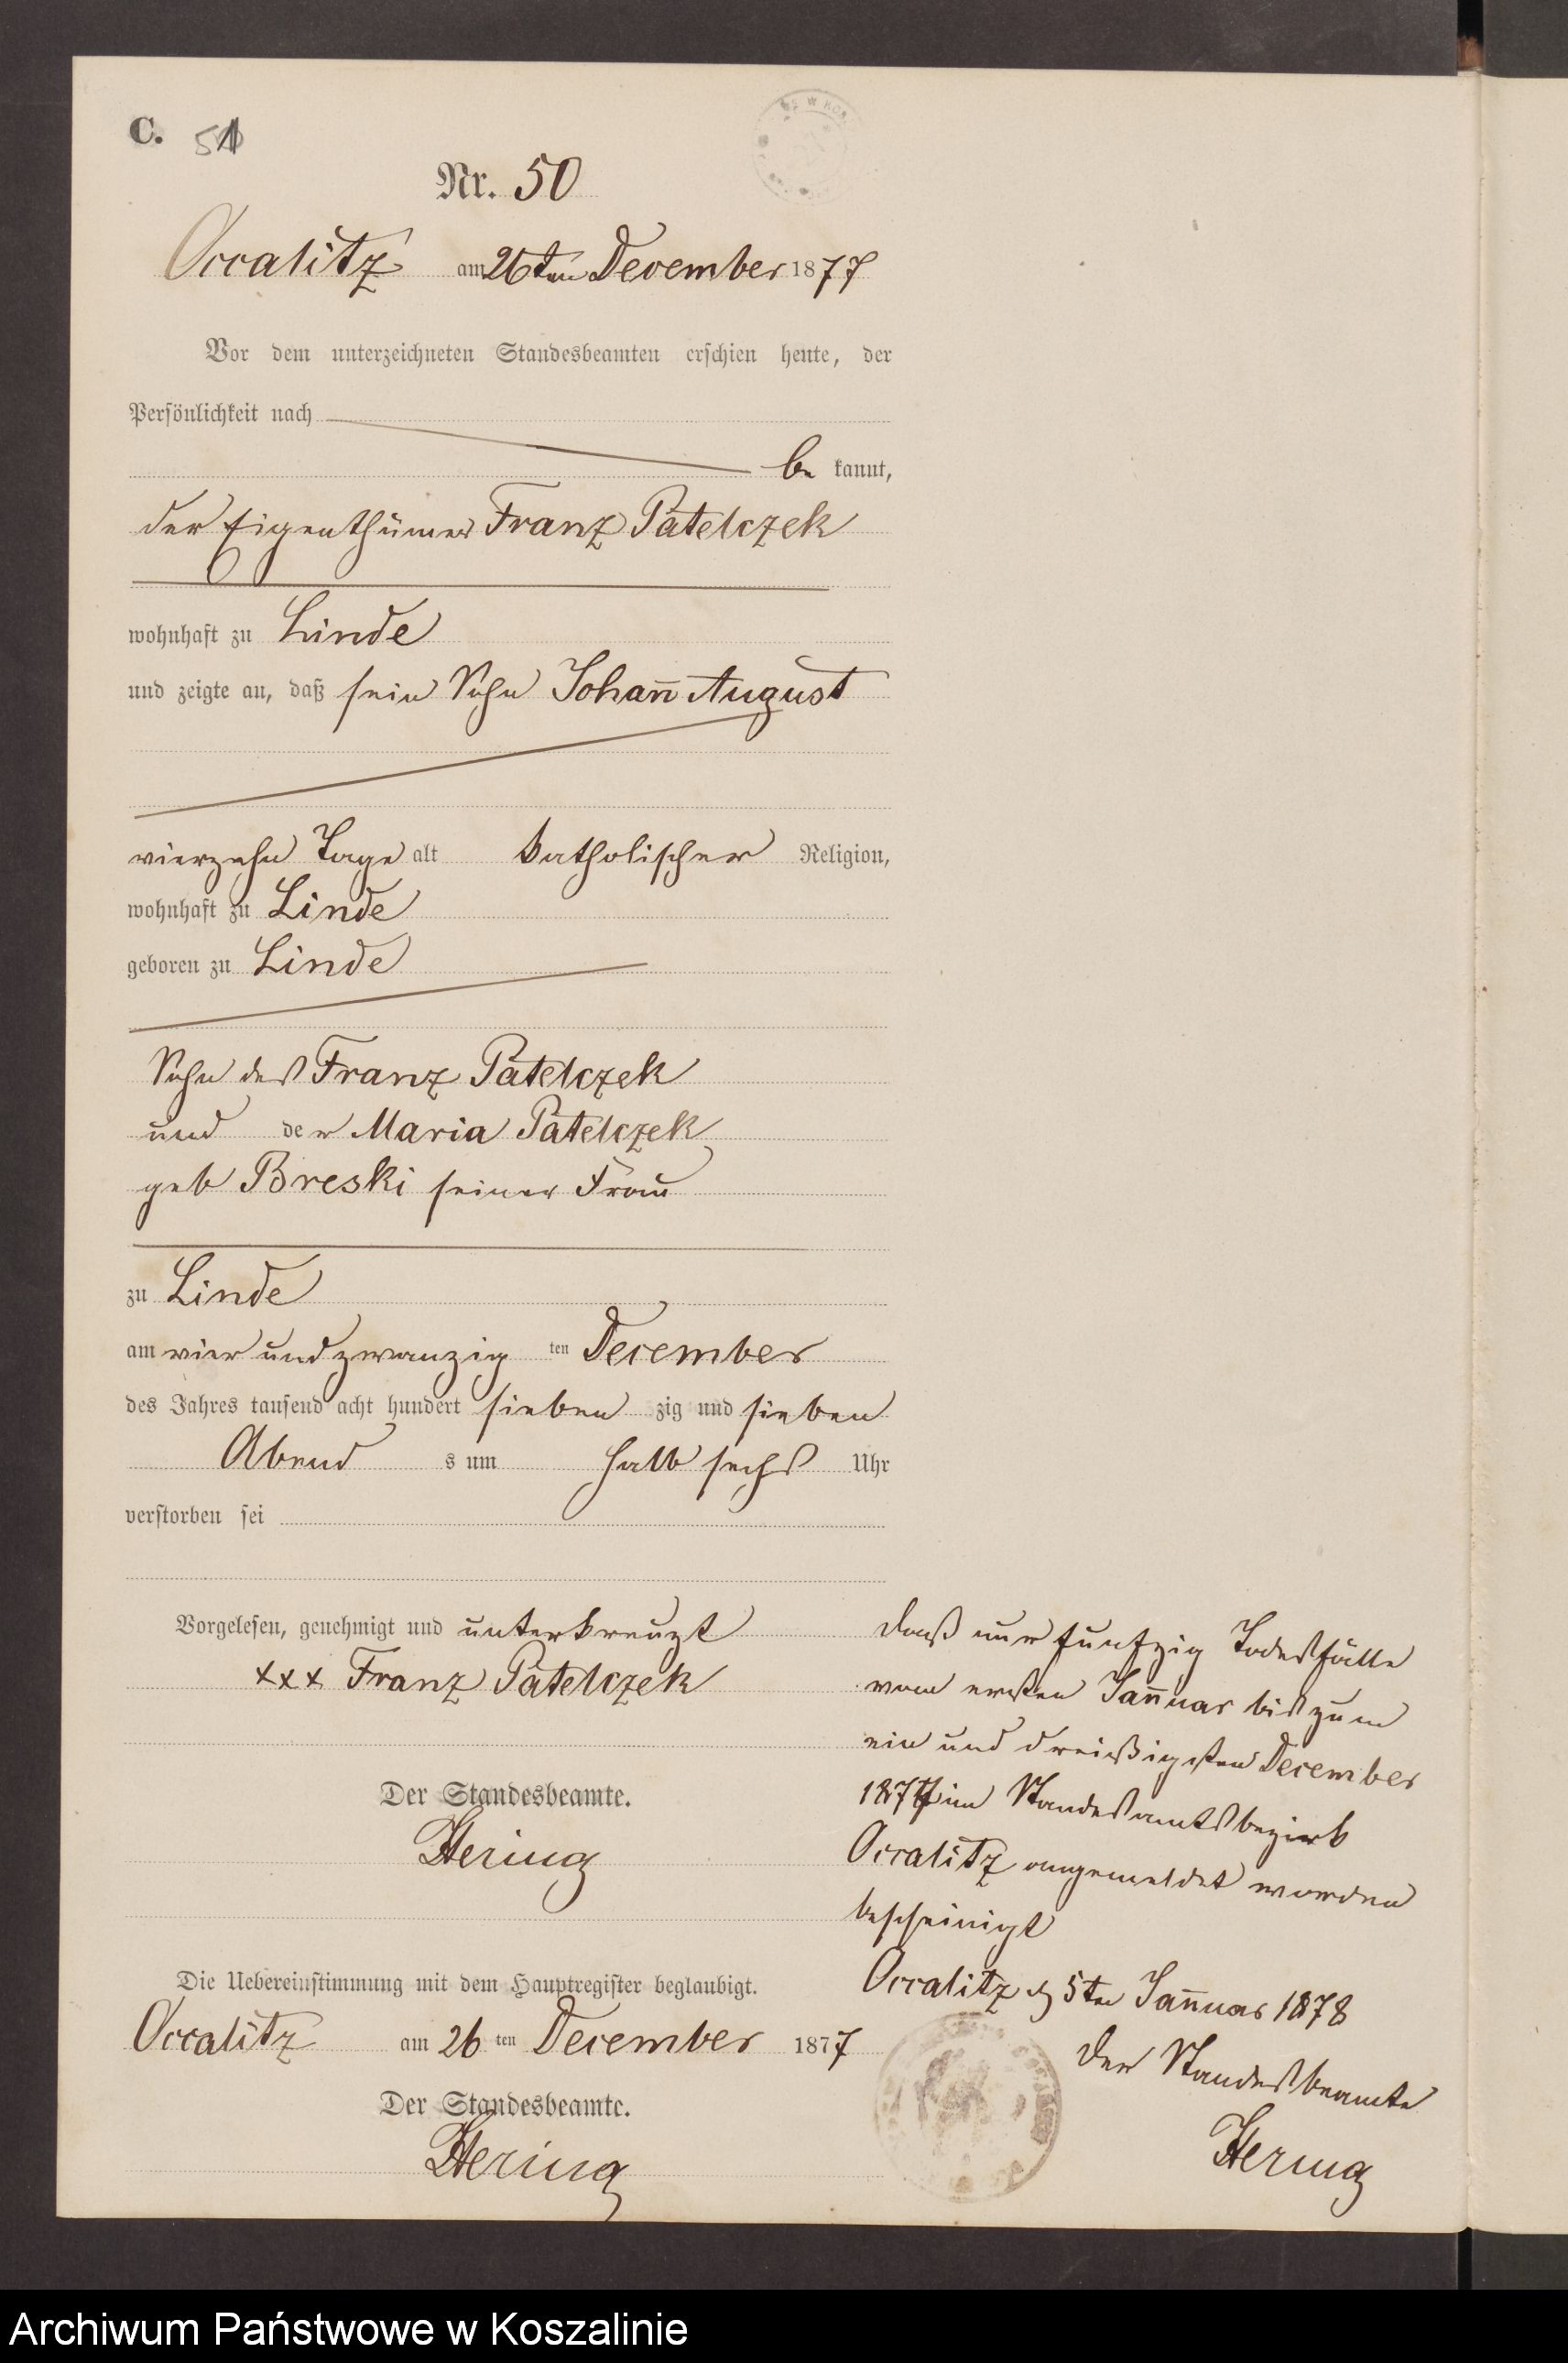 C. 51
Nr. 50
Occalitz am 26ten December 1877
Vor dem unterzeichneten Standesbeamten erschien heute, der
Persönlichkeit nach
be kannt,
der Eigenthümer Franz Patelczek
wohnhaft zu Linde
und zeigte an, daß sein Sohn Johan̄ August
vierzehn Tage alt katholischer Religion,
wohnhaft zu Linde
geboren zu Linde
Sohn des Franz Patelczek
und der Maria Patelczek
geb Breski seiner Frau
zu Linde
am vier und zwanzig ten December
des Jahres tausend acht hundert sieben zig und sieben
Abend s um halb sechs Uhr
verstorben sei
Vorgelesen, genehmigt und unterkreuzt
xxx Franz Patelczek
Der Standesbeamte.
Hering
Die Uebereinstimmung mit dem Hauptregister beglaubigt.
Occalitz am 26 ten December 1877
Der Standesbeamte.
Hering
Daß nur funfzig Todesfälle
vom ersten Jan̄uar bis zum
ein und dreißigsten December
1877 im Standesamtsbezirk
Occalitz angemeldet worden
bescheinigt
Occalitz d 5ten Jan̄uar 1878
Der Standesbeamte
Hering
Archiwum Państwowe w Koszalinie